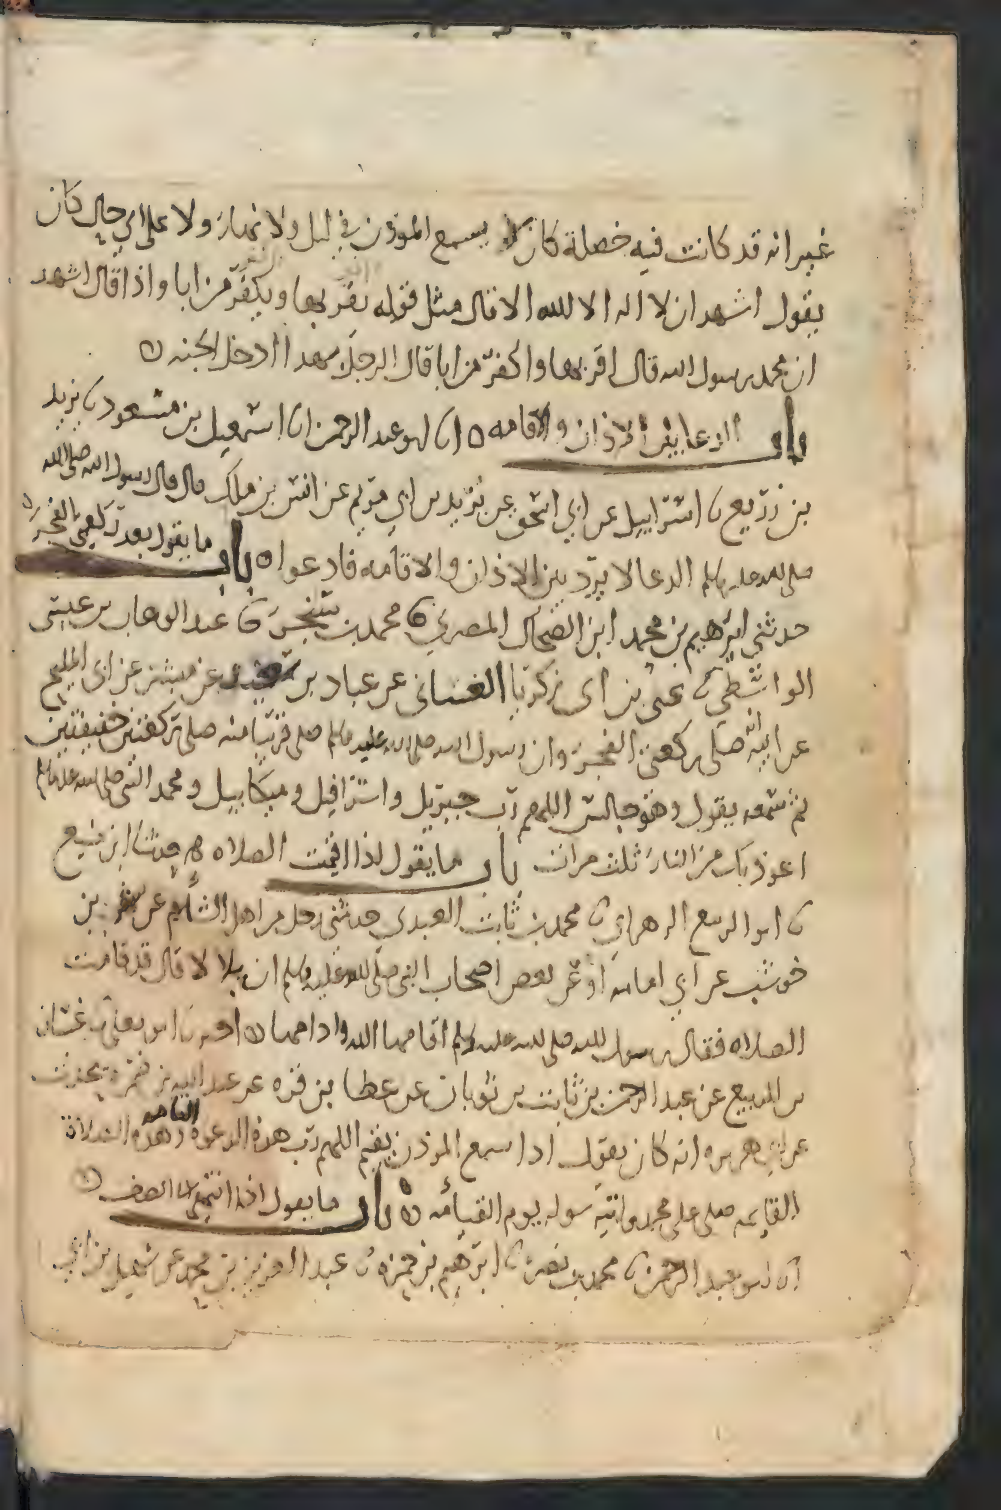 غير انه قد كانت فيه خصلة كان لا يسمع الموذن في ليل ولا نهار ولا على اي حال كان
يقول اشهد ان لا اله الا الله الا قال مثل قوله نقر بها ونكفر من ابا واذا قال اشهد
ان محمد رسول الله قال اقر بها واكفر من ابا قال الرجل بهذا ادخل الجنه
باب الدعا بين الاذان والاقامه انا ابو عبد الرحمن انا اسمعيل بن مسعود نا يزيد
بن زريع نا اسراييل عن ابي اسحق عن بريد بن ابي مريم عن انس بن ملك قال قال رسول الله صلى الله
صلى الله عليه وسلم الدعا لا يرد بين الاذان والاقامه فادعوا باب ما يقول بعد ركعتي الفجر
حدثني ابرهيم بن محمد ابن الضحاك المصري نا محمد بن سنجر نا عبد الوهاب بن عيسى
الواسطي نا يحيى بن ابي زكريا الغساني عن عباد بن سعيد عن مبشر عن ابي المليح
عن ابيه انه صلى ركعتي الفجر وان رسول الله صلى الله عليه وسلم صلى قريبا منه صلى ركعتين خفيفتين
ثم سمعه يقول وهو جالس اللهم رب جبريل واسرافيل وميكاييل ومحمد النبي صلى الله عليه وسلم
اعوذ بك من النار ثلث مرات باب ما يقول اذا اقيمت الصلاه حدثنا ابن منيع
نا ابو الربيع الزهراني نا محمد بن ثابت العبدي حدثني رجل من اهل الشام عن شهر بن
حوشب عن ابي امامه او عن بعض اصحاب النبي صلى الله عليه وسلم ان بلالا قال قد قامت
الصلاه فقال رسول الله صلى الله عليه وسلم اقامها الله وادامها اخبرنا ابو يعلى نا غسان
بن الربيع عن عبد الرحمن بن ثابت بن ثوبان عن عطا بن قره عن عبد الله بن ضمرة يحدث
عن ابي هريره انه كان يقول اذا سمع الموذن يقيم اللهم رب هذه الدعوة التامه وهذه الصلاة
القايمه صلى على محمد واتيه سوله يوم القيامه باب ما يقول اذا انتهى الى الصف
انا ابو عبد الرحمن نا محمد بن نصر نا ابرهيم بن حمزه نا عبد العزيز بن محمد عن سهيل بن ابي